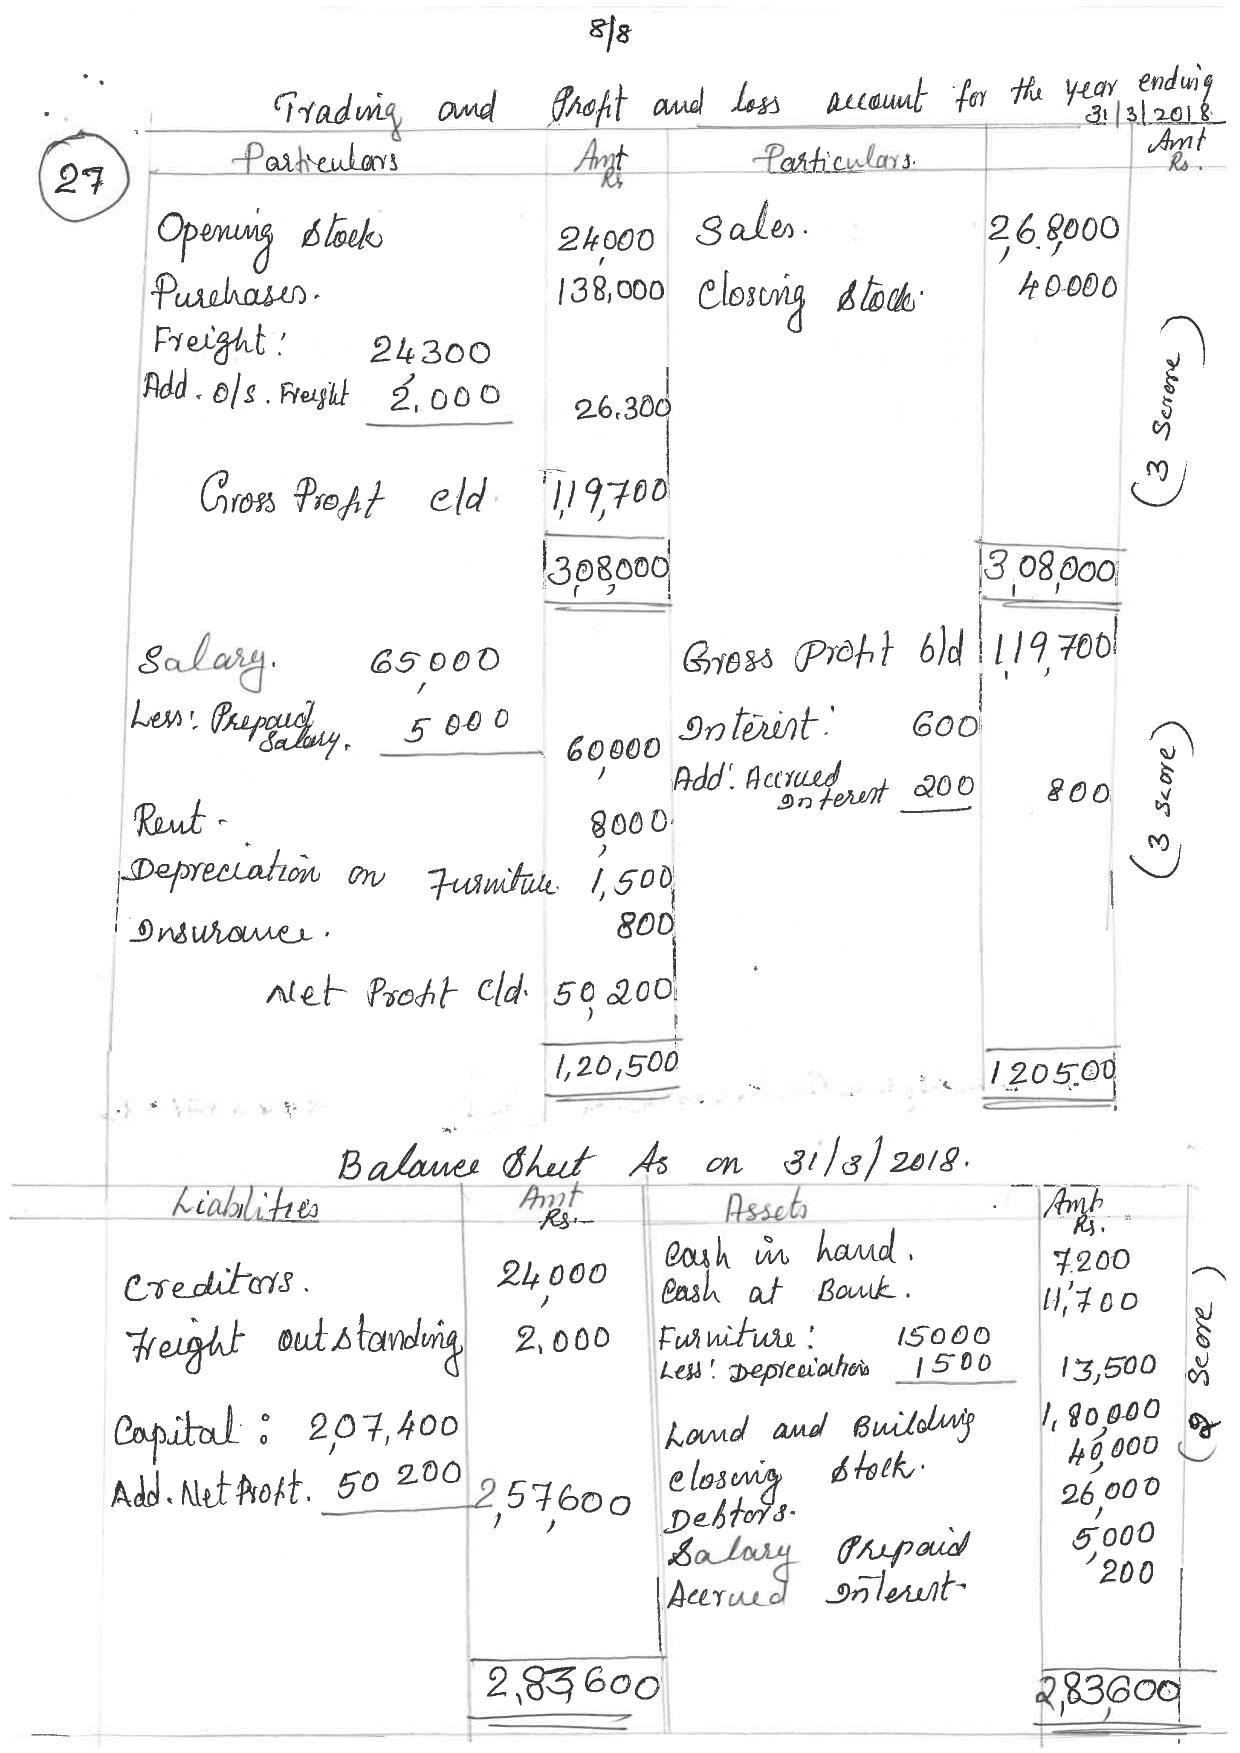 8/8
Trading and Profit and loss account for the year ending
31/3/2018
27
Particulars Amt Rs Particulars. Amt Rs.
Opening Stock 24,000 Sales. 2,68,000
Purchases. 138,000 Closing Stock. 40000
Freight: 24300
Add. O/s. Freight 2,000 26,300
(3 Scrore)
Gross Profit c/d. 1,19,700
3,08,000 3,08,000
Salary. 65,000 Gross Profit b/d 1,19,700
Less: Prepaid Salary. 5000 60,000 Interist: 600
Add: Accrued Interest 200 800
(3 Score)
Rent - 8000
Depreciation on Furniture 1,500
Insurance. 800
Net Profit c/d. 50,200
1,20,500 120500
Balance Sheet As on 31/3/2018.
Liabilities Amt Rs.- Assets Amt Rs.
Creditors. 24,000 Cash in hand. 7200
Cash at Bank. 11,700
Freight outstanding 2,000 Furniture: 15000
Less: Depreciation 1500 13,500
(2 Score)
Capital: 2,07,400 Land and Building 1,80,000
Add. Net Profit. 50 200 2,57,600 Closing Stock. 40,000
Debtors. 26,000
Salary Prepaid 5,000
Accrued Interest- 200
2,83,600 2,83,600